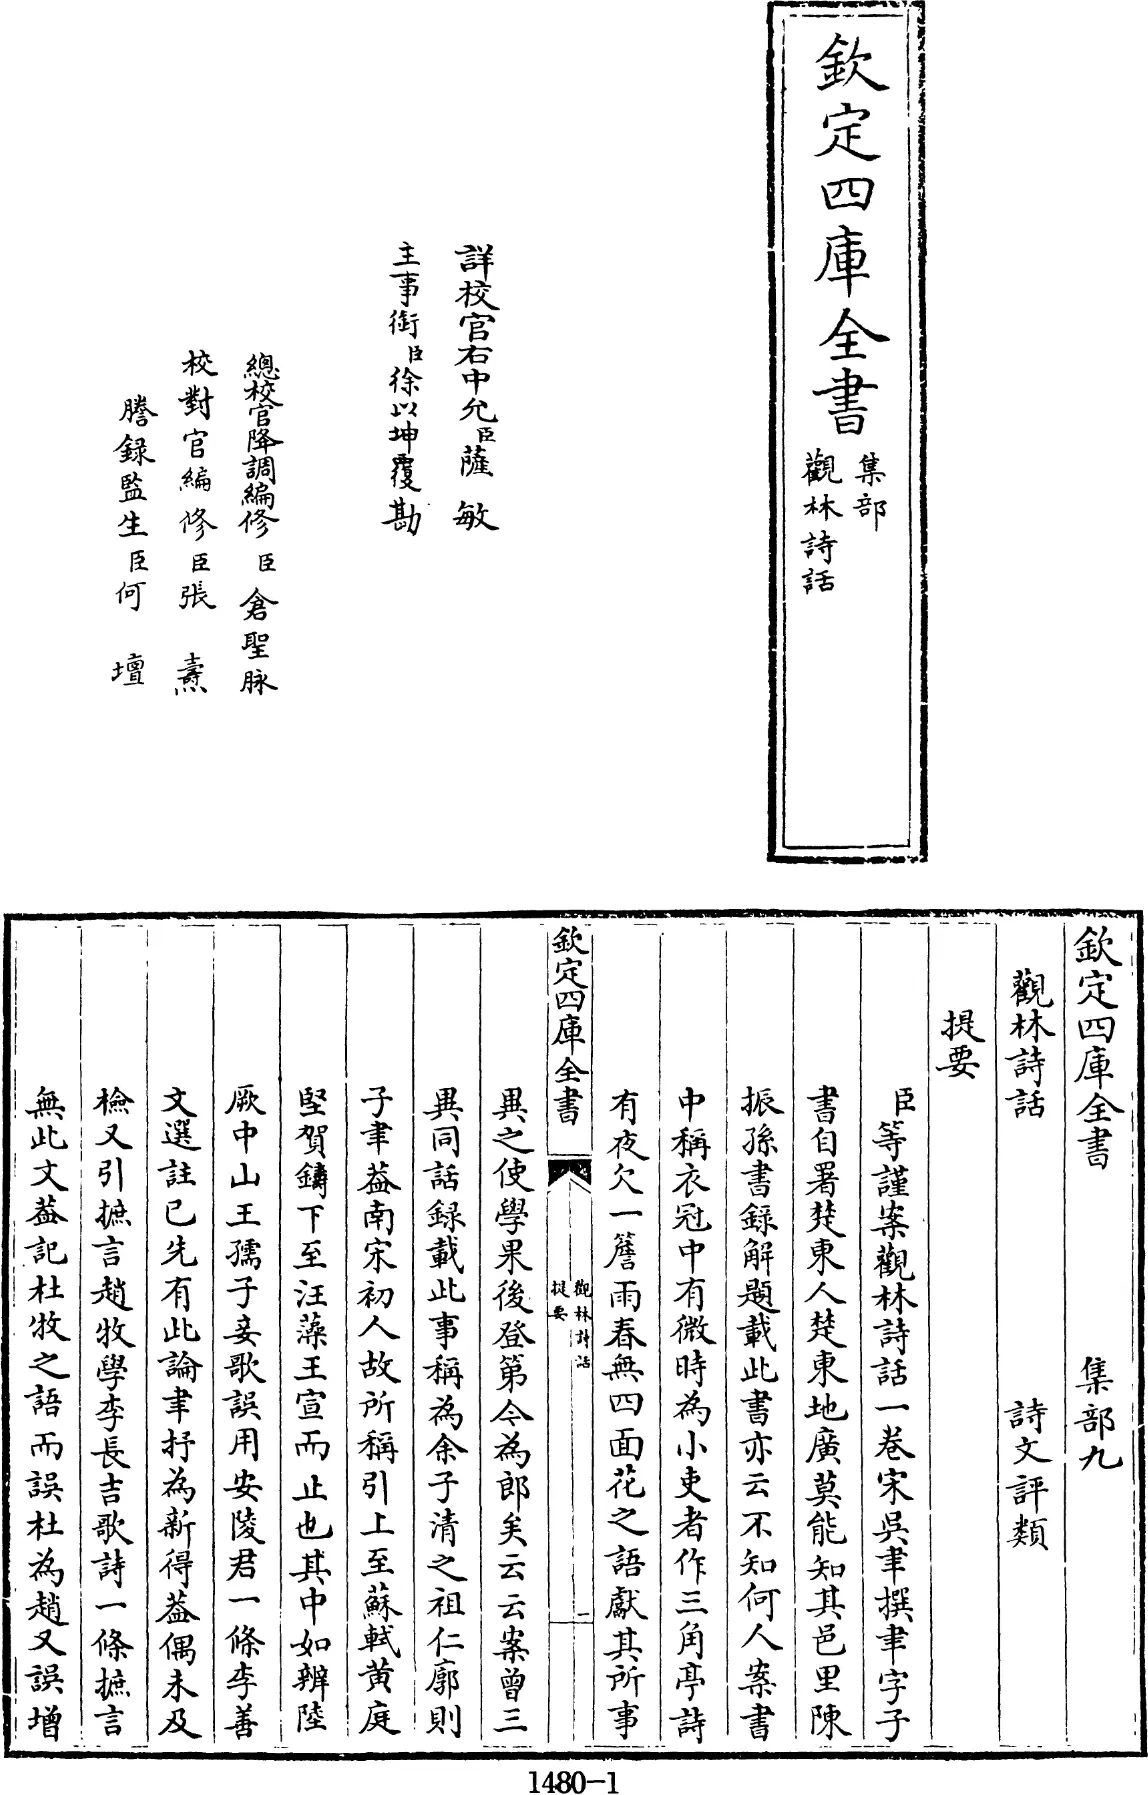 欽定四庫全書
集部
觀林詩話
詳校官右中允臣薩敏
主事銜臣徐以坤覆勘
總校官降調編修臣倉聖脉
校對官編修臣張燾
謄録監生臣何壇
欽定四庫全書 集部九
觀林詩話 詩文評類
提要
臣等謹案觀林詩話一卷宋吳聿撰聿字子
書自署楚東人楚東地廣莫能知其邑里陳
振孫書録解題載此書亦云不知何人案書
中稱衣冠中有微時為小吏者作三角亭詩
有夜欠一簷雨春無四面花之語獻其所事
欽定四庫全書
觀林詩話
提要
一
異之使學果後登第今為郎矣云云案曾三
異同話録載此事稱為余子清之祖仁廓則
子聿葢南宋初人故所稱引上至蘇軾黄庭
堅賀鑄下至汪藻王宣而止也其中如辨陸
厥中山王孺子妾歌誤用安陵君一條李善
文選註已先有此論聿抒為新得葢偶未及
檢又引摭言趙牧學李長吉歌詩一條摭言
無此文葢記杜牧之語而誤杜為趙又誤增
1480-1